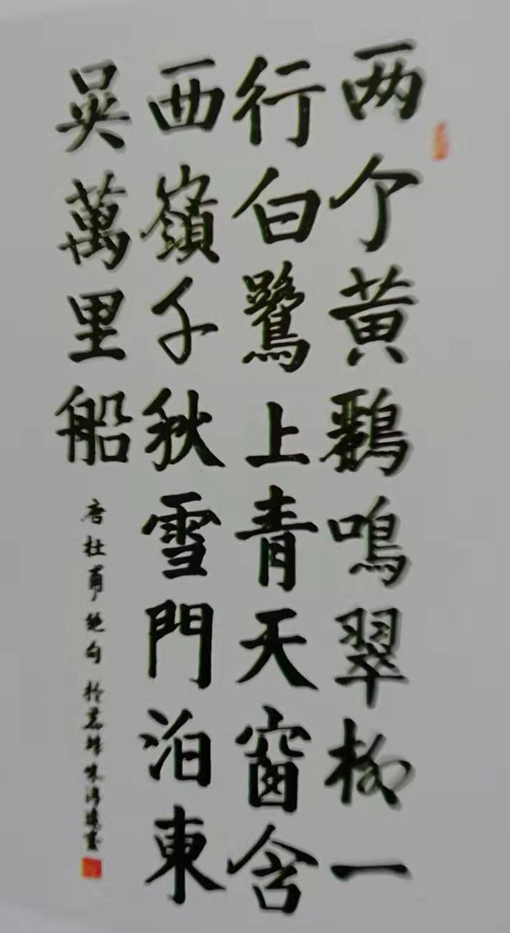 两个黄鸝鳴翠柳一
行白鷺上青天窗含
西嶺千秋雪門泊東
吴萬里船
唐杜甫绝句